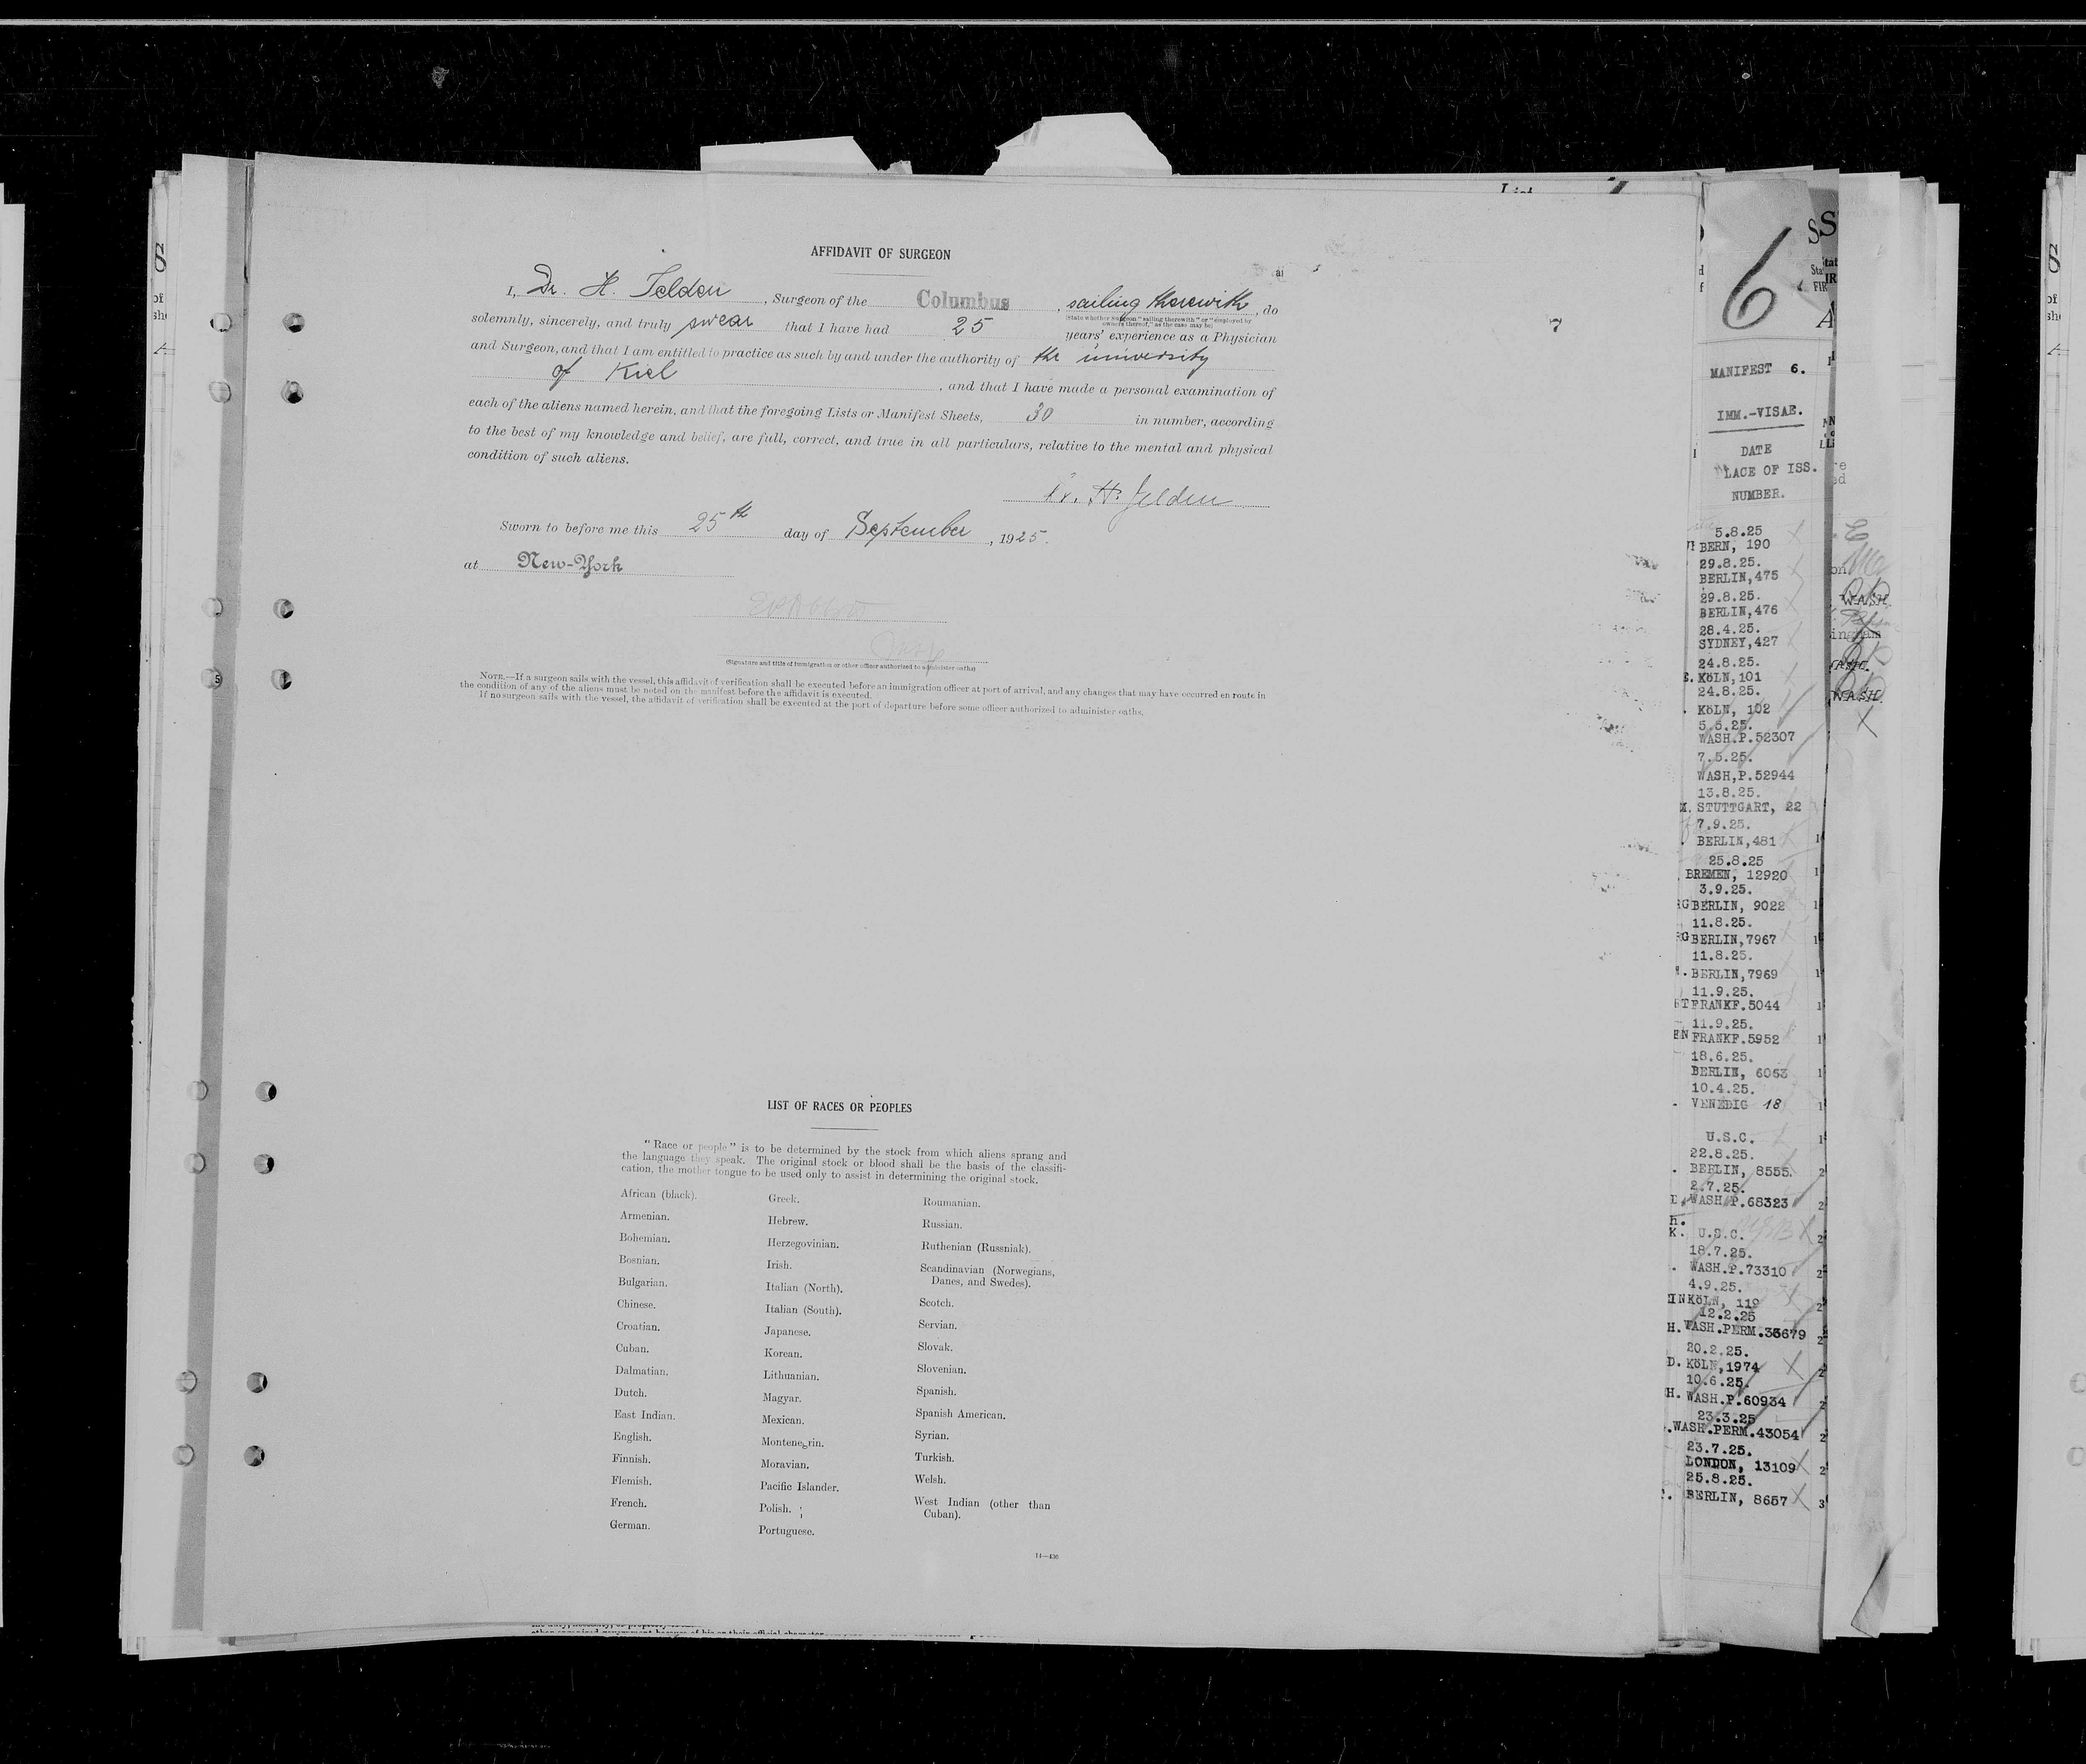 AFFIDAVIT OF SURGEON
I, Dr. H. Jelden, Surgeon of the Columbus, sailing therewith, do
(State whether Surgeon "sailing therewith" or "employed by
owners thereof," as the case may be)
solemnly, sincerely, and truly swear that I have had 25 years' experience as a Physician
and Surgeon, and that I am entitled to practice as such by and under the authority of the university
of Kiel, and that I have made a personal examination of
each of the aliens named herein, and that the foregoing Lists or Manifest Sheets, 30 in number, according
to the best of my knowledge and belief, are full, correct, and true in all particulars, relative to the mental and physical
condition of such aliens.
Dr. H. Jelden
Sworn to before me this 25th day of September, 1925.
at New-York
(Signature and title of immigration or other officer authorized to administer oaths)
NOTE.—If a surgeon sails with the vessel, this affidavit of verification shall be executed before an immigration officer at port of arrival, and any changes that may have occurred en route in
the condition of any of the aliens must be noted on the manifest before the affidavit is executed.
If no surgeon sails with the vessel, the affidavit of verification shall be executed at the port of departure before some officer authorized to administer oaths.
LIST OF RACES OR PEOPLES
"Race or people" is to be determined by the stock from which aliens sprang and
the language they speak. The original stock or blood shall be the basis of the classifi-
cation, the mother tongue to be used only to assist in determining the original stock.
African (black).
Armenian.
Bohemian.
Bosnian.
Bulgarian.
Chinese.
Croatian.
Cuban.
Dalmatian.
Dutch.
East Indian.
English.
Finnish.
Flemish.
French.
German.
Greek.
Hebrew.
Herzegovinian.
Irish.
Italian (North).
Italian (South).
Japanese.
Korean.
Lithuanian.
Magyar.
Mexican.
Montenegrin.
Moravian.
Pacific Islander.
Polish.
Portuguese.
Roumanian.
Russian.
Ruthenian (Russniak).
Scandinavian (Norwegians,
Danes, and Swedes).
Scotch.
Servian.
Slovak.
Slovenian.
Spanish.
Spanish American.
Syrian.
Turkish.
Welsh.
West Indian (other than
Cuban).
14—436
7
6
MANIFEST 6.
IMM.-VISAE.
DATE
LACE OF ISS.
NUMBER.
5.8.25
BERN, 190
29.8.25.
BERLIN,475
29.8.25.
BERLIN,476
28.4.25.
SYDNEY,427
24.8.25.
KöLN,101
24.8.25.
KöLN, 102
5.5.25.
WASH.P.52307
7.5.25.
WASH,P.52944
13.8.25.
STUTTGART, 22
7.9.25.
BERLIN,481
25.8.25
BREMEN, 12920
3.9.25.
BERLIN, 9022
11.8.25.
BERLIN,7967
11.8.25.
BERLIN,7969
11.9.25.
FRANKF.5044
11.9.25.
FRANKF.5952
18.6.25.
BERLIN, 6063
10.4.25.
VENEDIG 18
U.S.C.
22.8.25.
BERLIN, 8555.
2.7.25.
WASH.P.68323
U.S.C.
18.7.25.
WASH.P.73310
4.9.25.
KöLN, 119
12.2.25
WASH.PERM.33679
20.2.25.
KöLN,1974
10.6.25.
WASH.P.60934
23.3.25
WASH.PERM.43054
23.7.25.
LONDON, 13109
25.8.25.
BERLIN, 8657